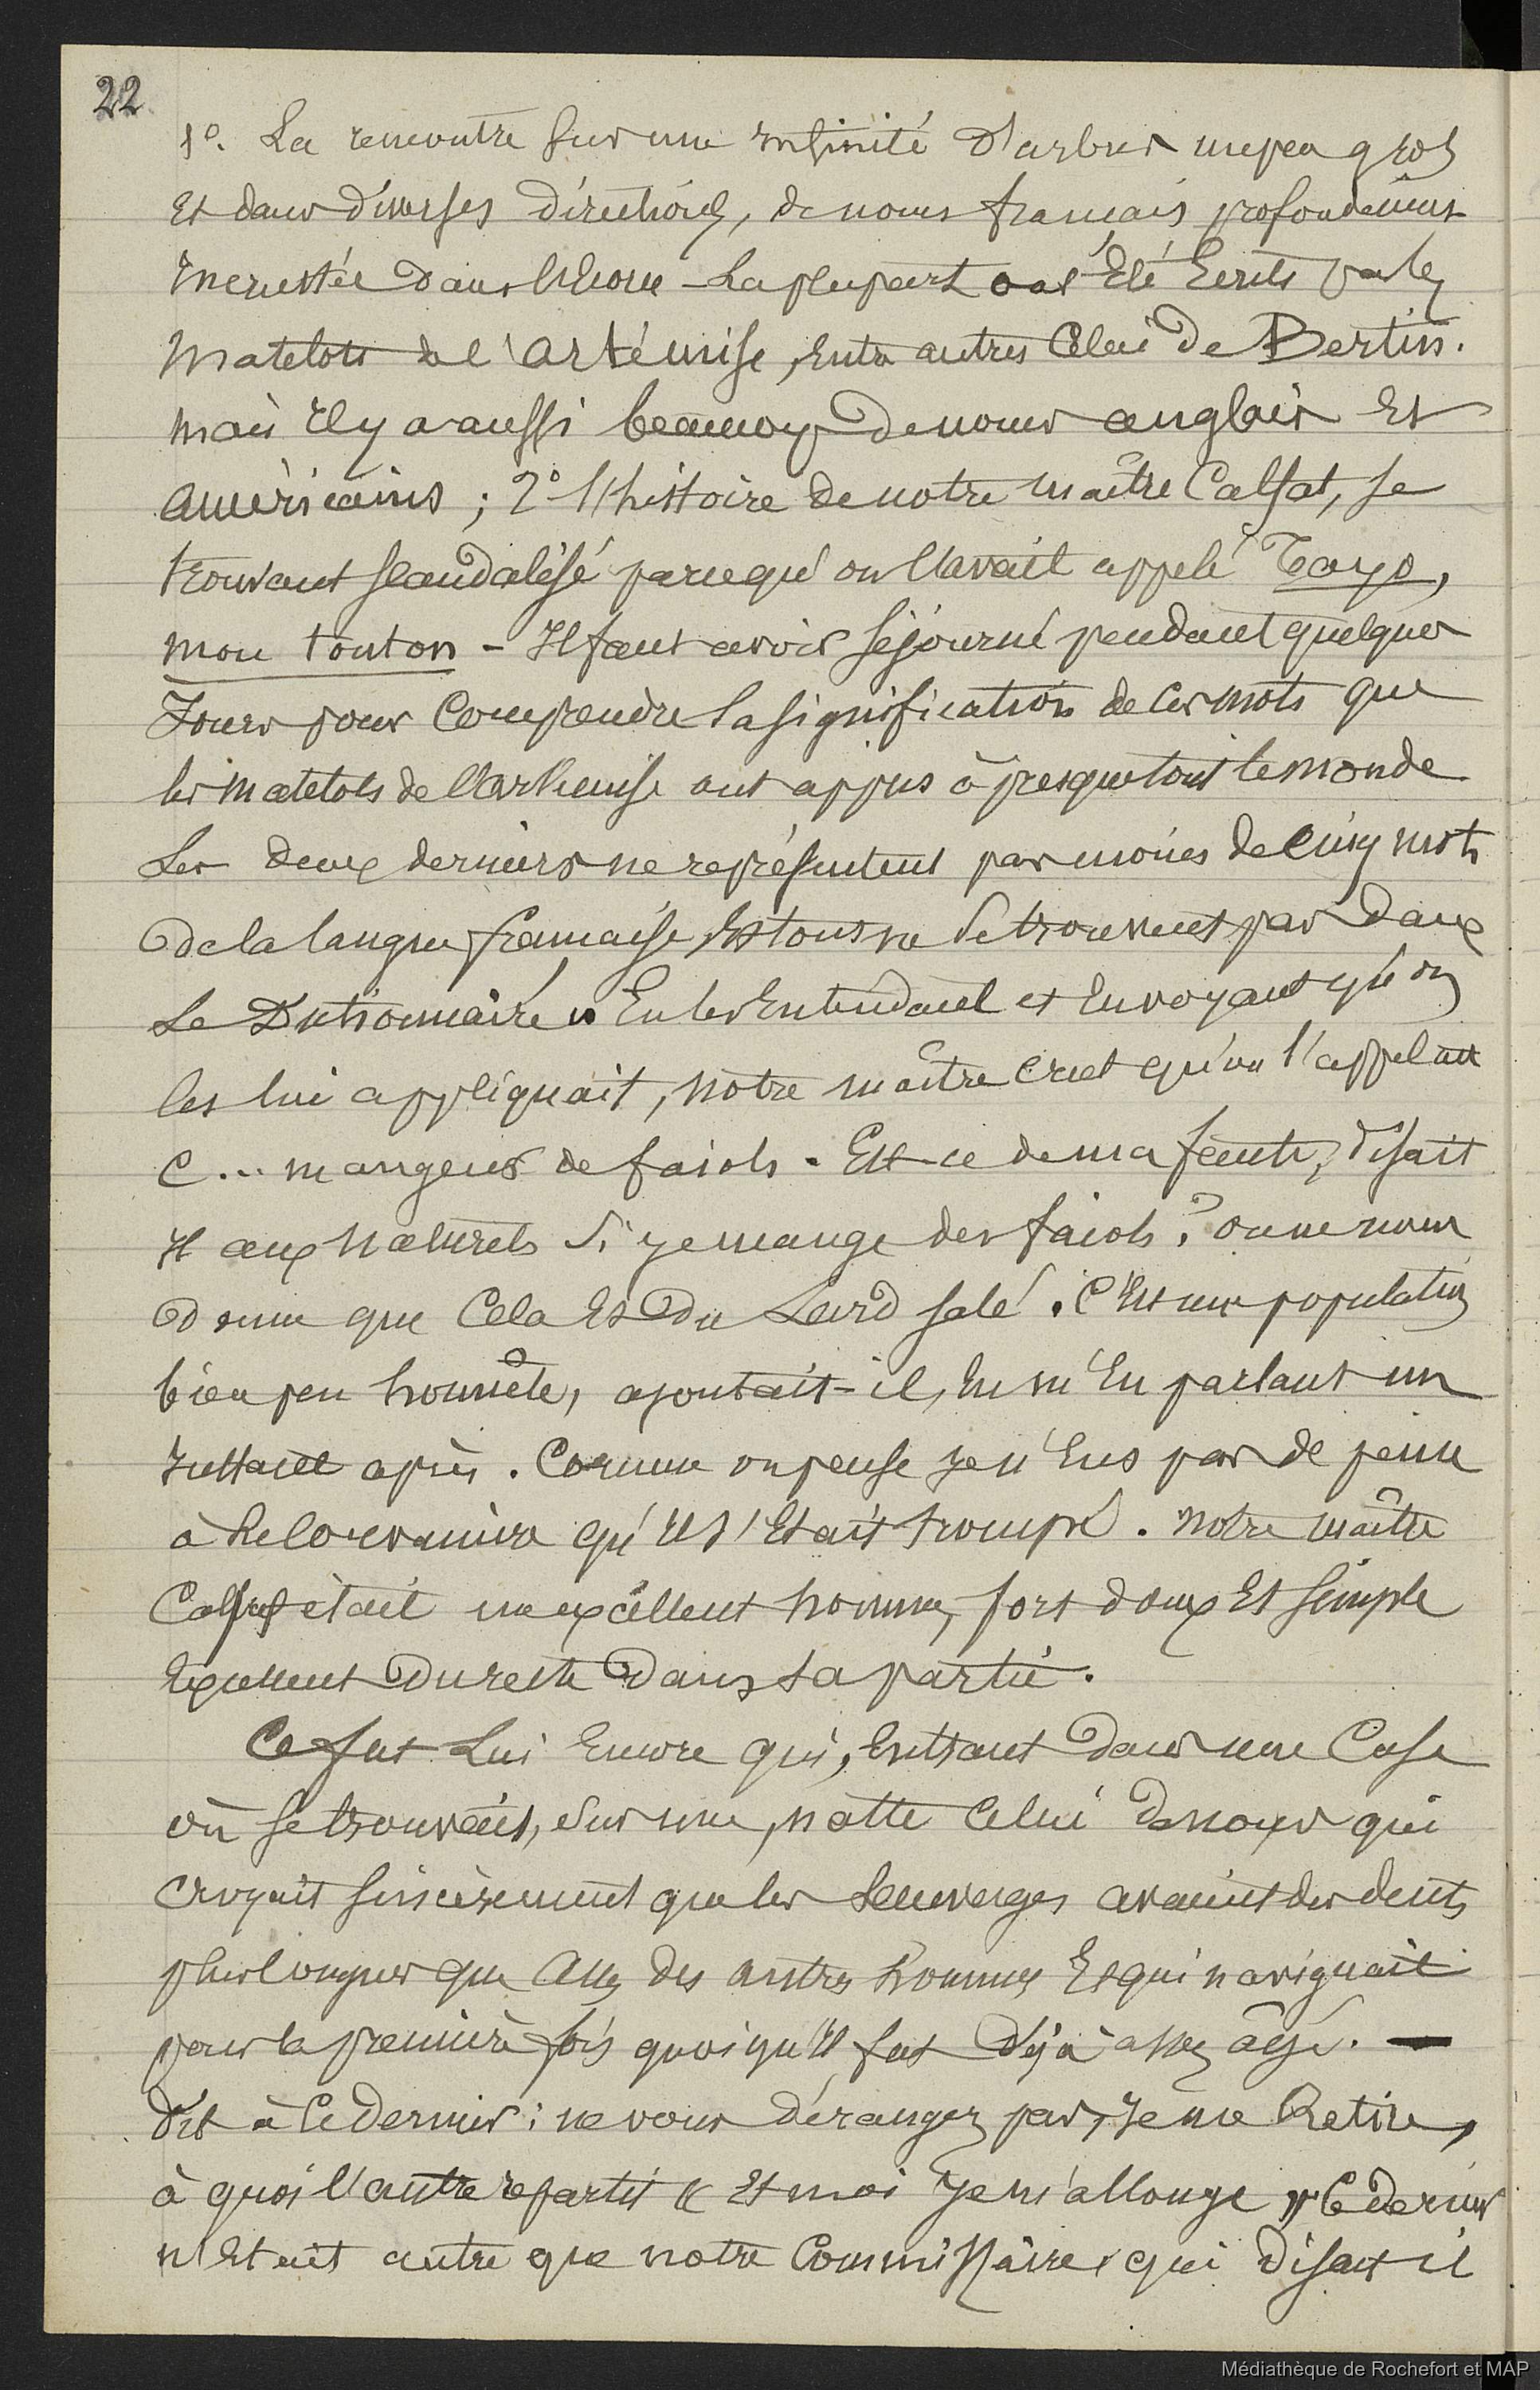 22
1º. La rencontre sur une infinité d'arbres un peu gros
et dans diverses directions, de noms français profondément
incrustés dans l'écorce - La plupart ont été écrits par les
matelots de l'artémise, entr autres celui de Bertin.
mais il y a aussi beaucoup de noms anglais et
américains ; 2º l'histoire de notre maître Calfat, se
trouvant scandalisé parce qu'on l'avait appelé Tayo,
mon touton - Il faut avoir séjourné pendant quelques
Jours pour comprendre la signification de ces mots que
les matelots de l'arthemise ont appris à presque tout le monde
Les deux derniers ne représentent pas moins de cinq mots
de la langue française, et tous ne se trouvent pas dans
Le Dictionnaire. En les entendant et en voyant qu'on
les lui appliquait, notre maître crut qu'on l'appelait
C... mangeur de faiols. Est-ce de ma faute, disait
il aux naturels si je mange des faiols ? on ne nous
donne que cela et du Lard salé. C'est une population
bien peu honnête, ajoutait-il, en m'en parlant un
instant après. Comme on pense je n'eus pas de peine
à le convaincre qu'il s'était trompé. Notre maître
Calfat était un excellent homme, fort doux et simple
excellent du reste dans sa partie.
Ce fut Lui encore qui, entrant dans une Case
où se trouvait, sur une, natte celui de nous qui
croyait sincèrement que les sauvages avaient des dents
plus longues que celles des autres hommes et qui naviguait
pour la première fois quoiqu'il fut déjà assez âgé. —
dit à ce dernier : ne vous dérangez pas, je me Retire,
à quoi l'autre repartit « Et moi je m'allonge » Ce dernier
n'était autre que notre Commissaire qui disait il
Médiathèque de Rochefort et MAP